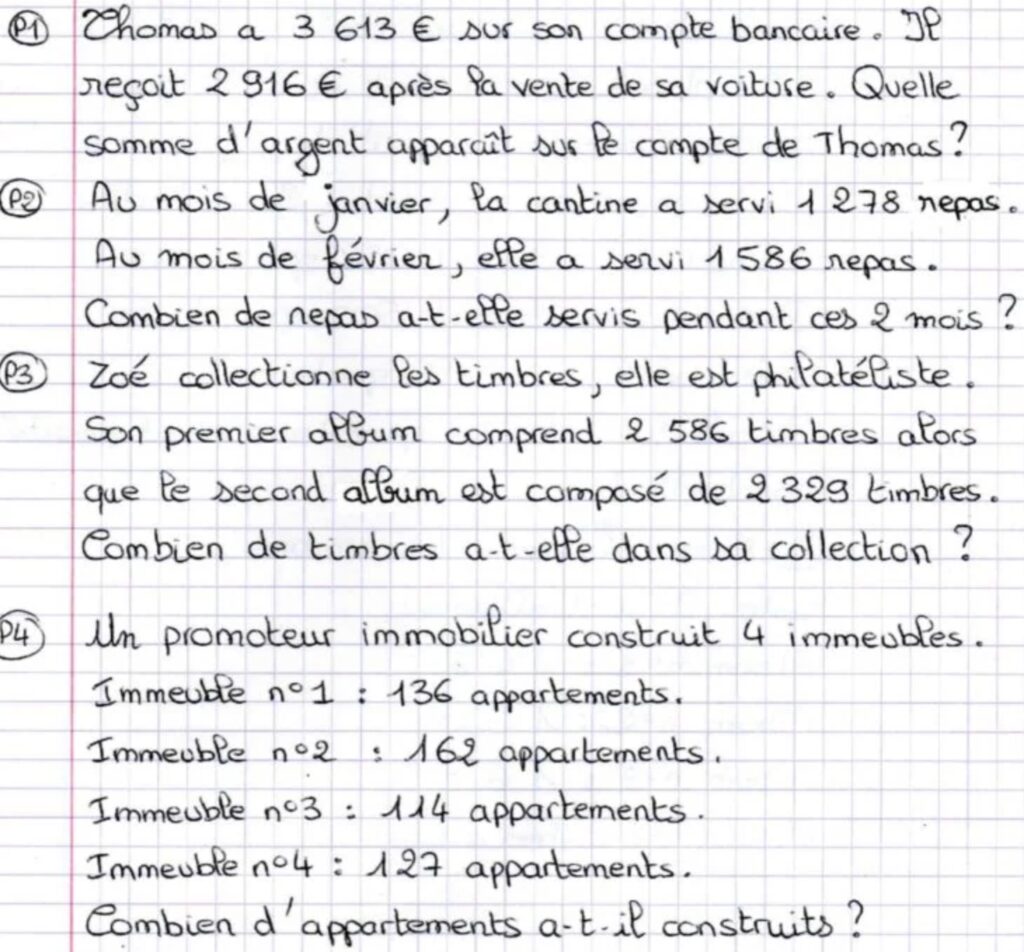 P1 Thomas a 3 613 € sur son compte bancaire. Il
reçoit 2 916 € après la vente de sa voiture. Quelle
somme d'argent apparaît sur le compte de Thomas ?
P2 Au mois de janvier, la cantine a servi 1 278 repas.
Au mois de février, elle a servi 1 586 repas.
Combien de repas a-t-elle servis pendant ces 2 mois ?
P3 Zoé collectionne les timbres, elle est philatéliste.
Son premier album comprend 2 586 timbres alors
que le second album est composé de 2 329 timbres.
Combien de timbres a-t-elle dans sa collection ?
P4 Un promoteur immobilier construit 4 immeubles.
Immeuble n°1 : 136 appartements.
Immeuble n°2 : 162 appartements.
Immeuble n°3 : 114 appartements.
Immeuble n°4 : 127 appartements.
Combien d'appartements a-t-il construits ?